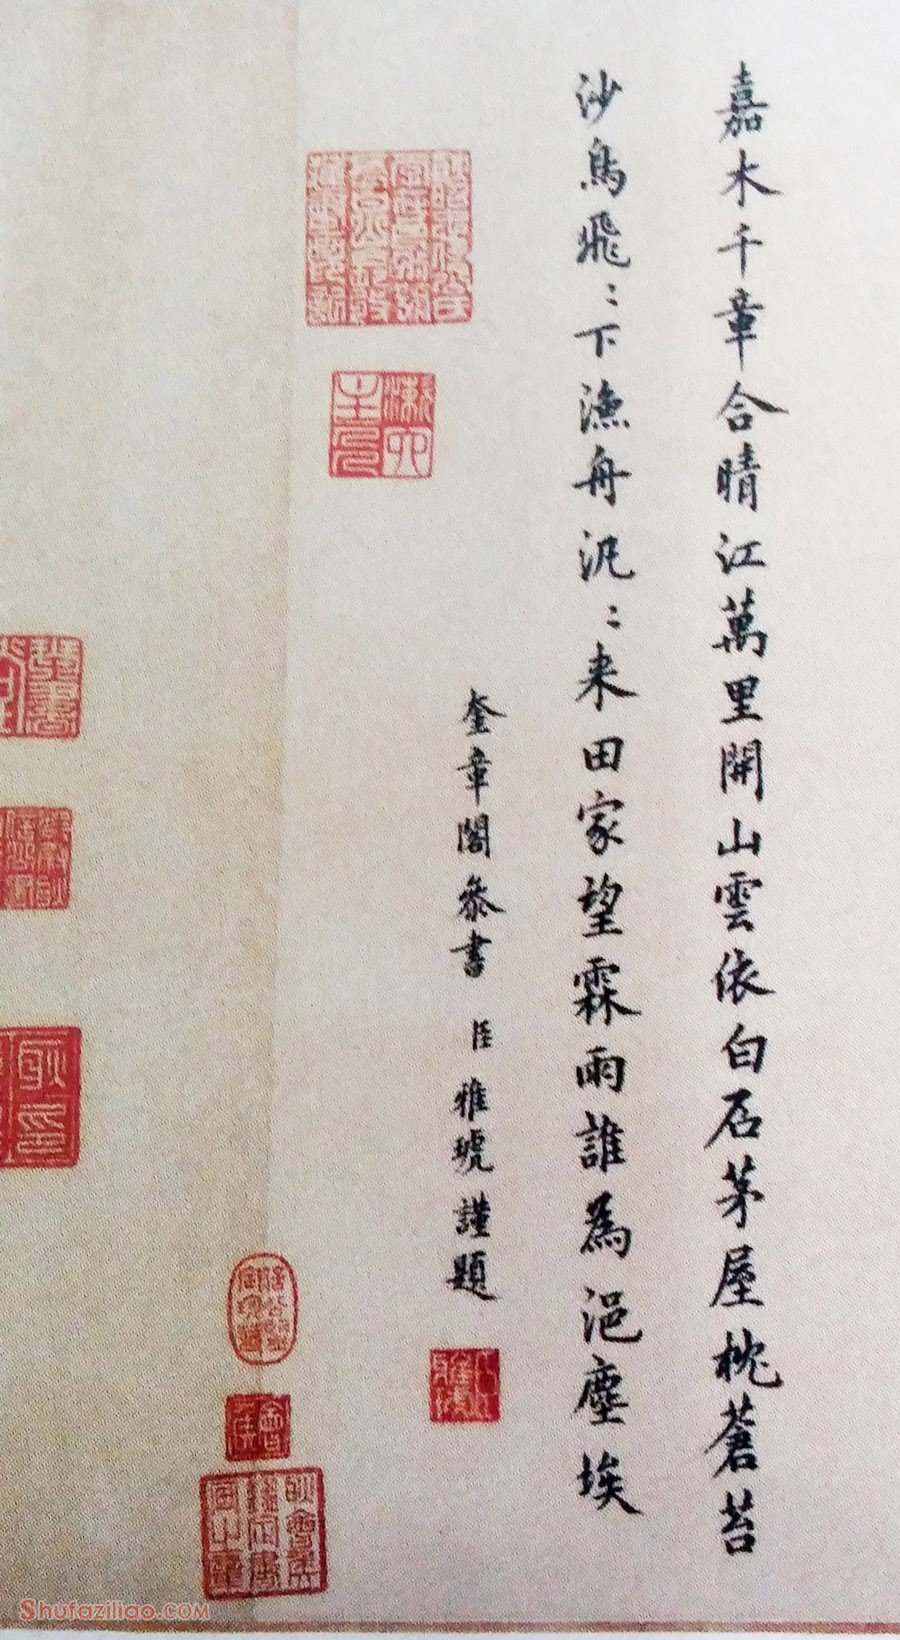 嘉木千章合晴江萬里開山雲依白石茅屋枕蒼苔
沙鳥飛〻下漁舟汎〻来田家望霖雨誰為浥塵埃
奎章閣叅書臣雅琥謹題
Shufaziliao.COM